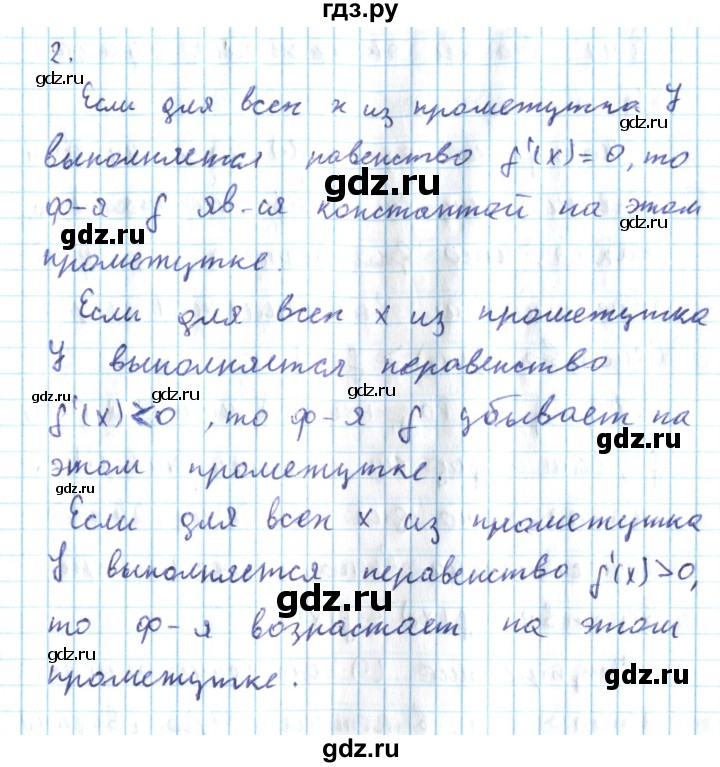 гдз.ру
2.
gdz.ru
Если для всех x из промежутка I
gdz.ru
выполняется равенство f'(x)=0, то
gdz.ru
gdz.ru
ф-я f яв-ся константой на этом
gdz.ru
gdz.ru
промежутке.
Если для всех x из промежутка
I выполняется неравенство
gdz.ru gdz.ru gdz.ru
f'(x)<0, то ф-я f убывает на
этом промежутке.
gdz.ru
Если для всех x из промежутка
I выполняется неравенство f'(x)>0,
gdz.ru
gdz.ru
то ф-я возрастает на этом
gdz.ru
промежутке.
gdz.ru
gdz.ru